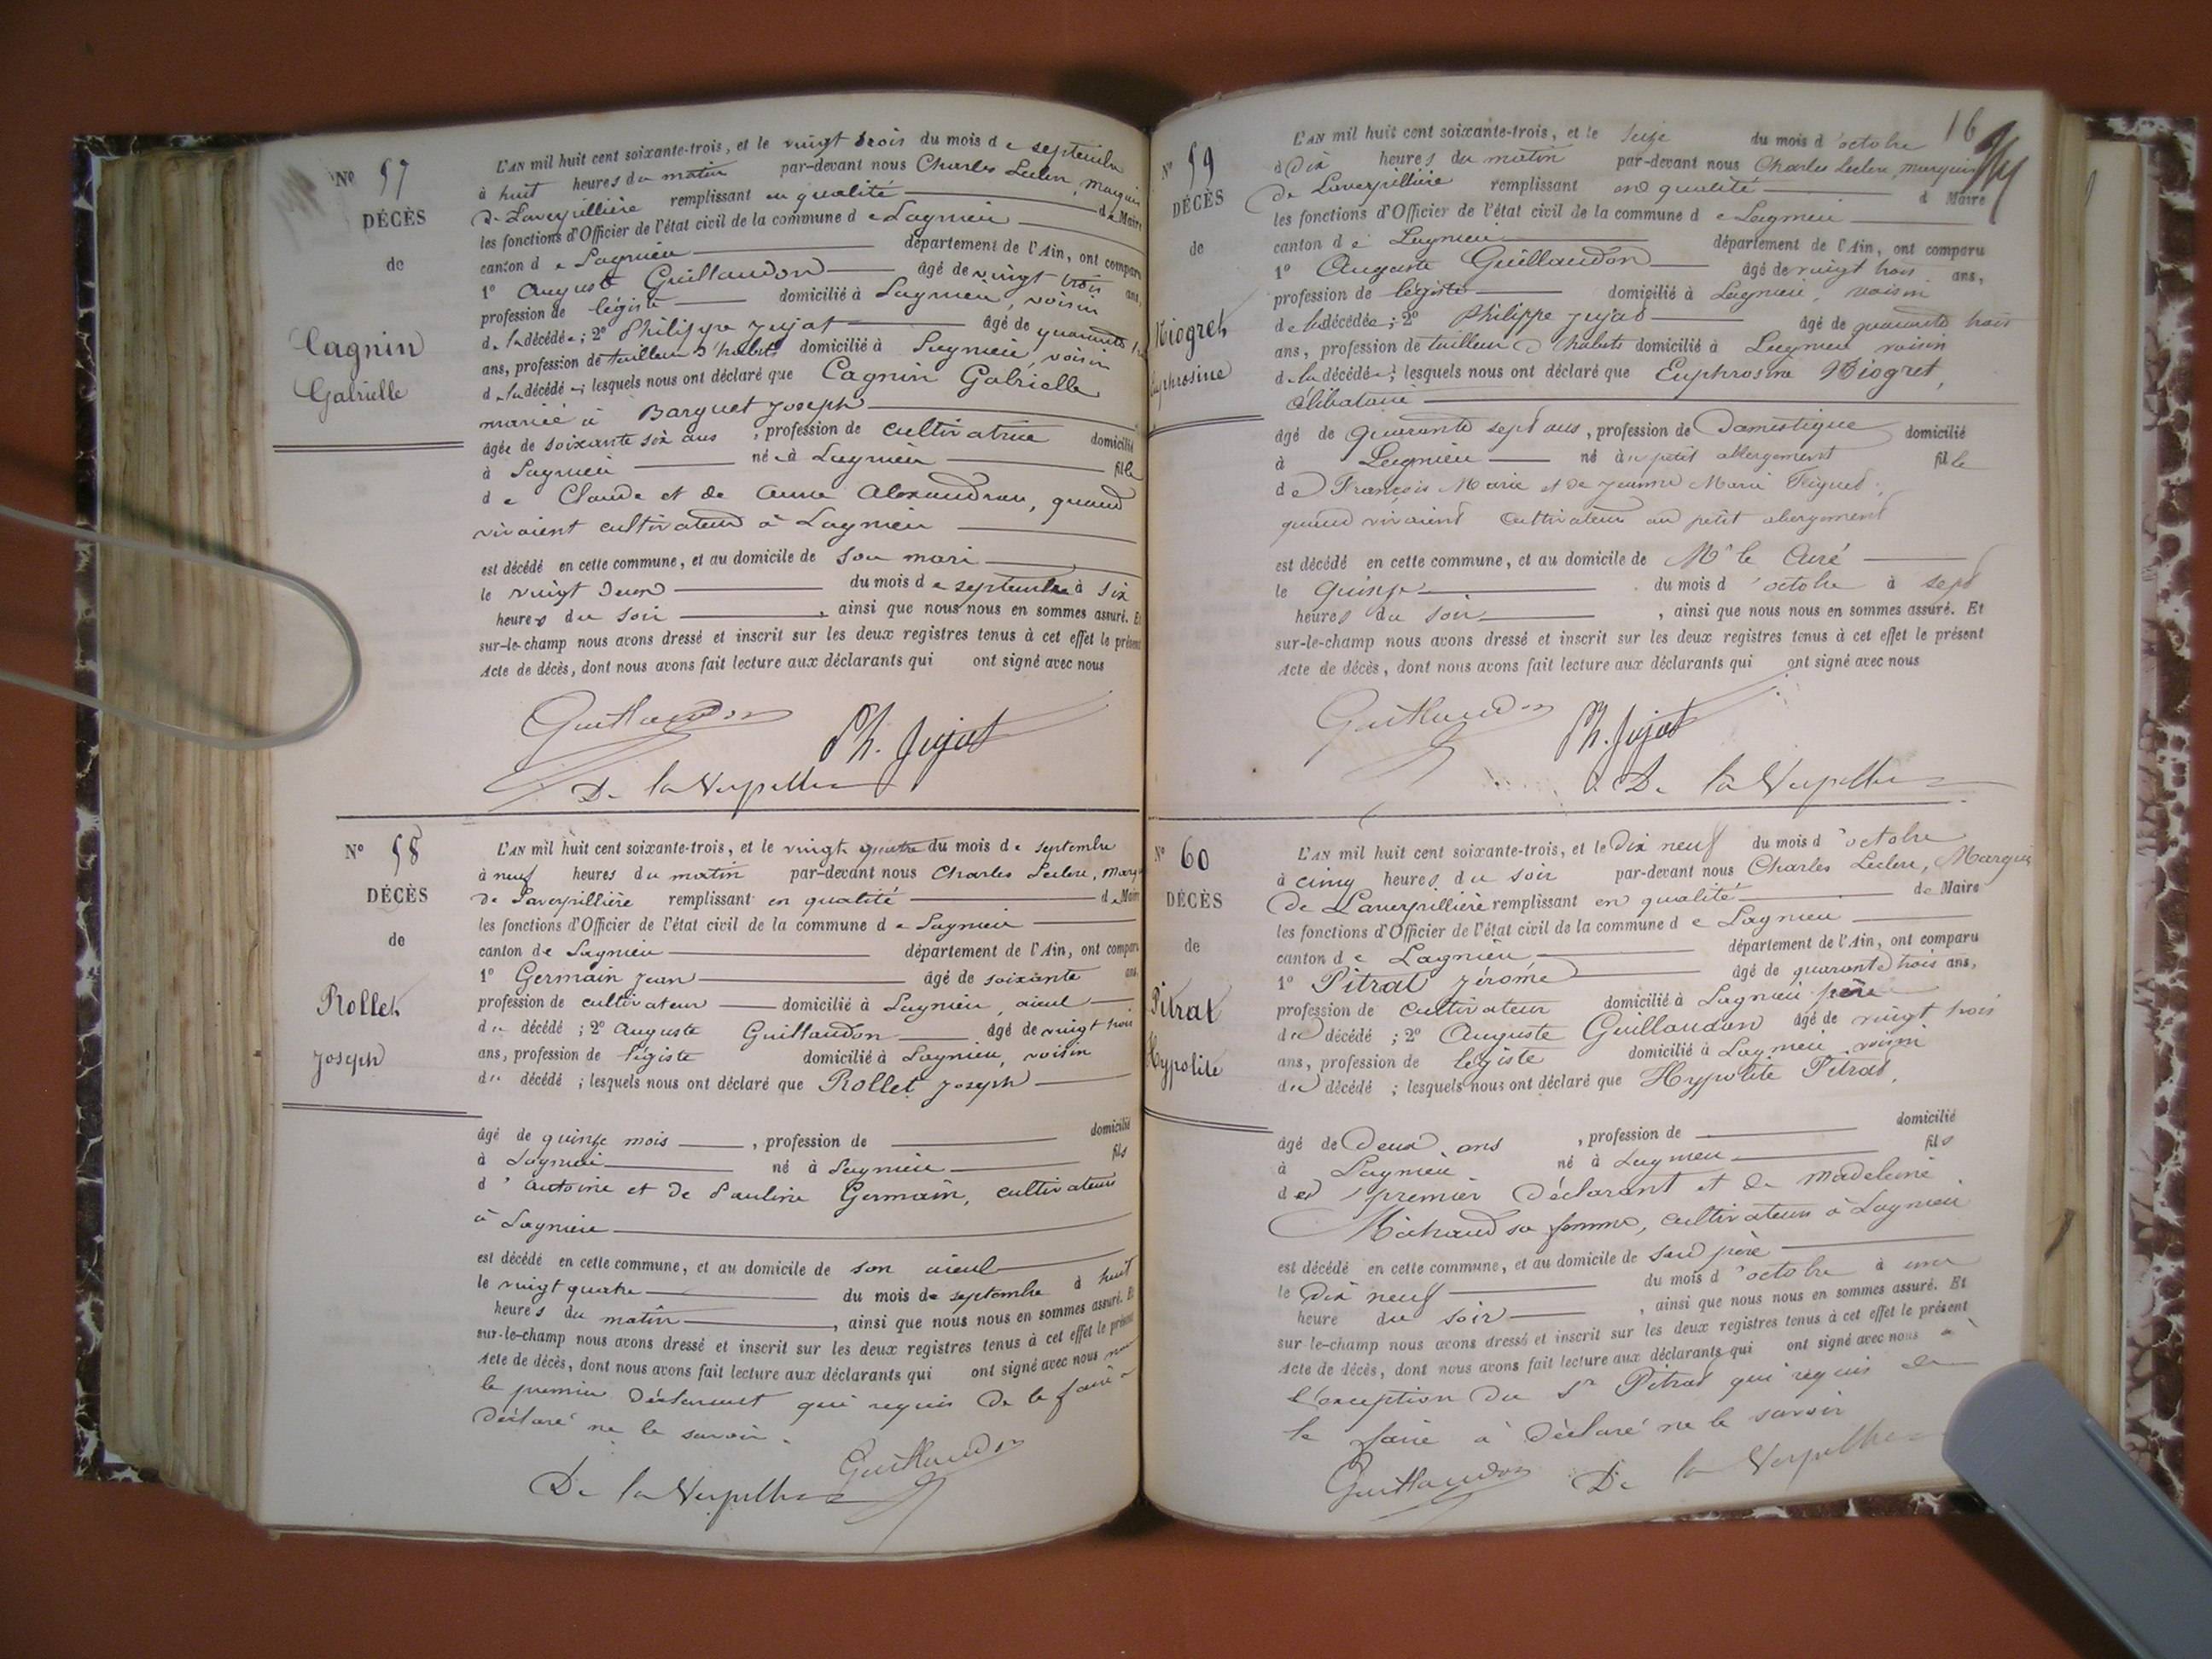 N° 57
DÉCÈS
de
Cagnin
Gabrielle
L'AN mil huit cent soixante-trois, et le vingt trois du mois de septembre
à huit heures du matin par-devant nous Charles Leclerc, Marquis
de Laverpillière remplissant en qualité de Maire
les fonctions d'Officier de l'état civil de la commune de Lagnieu
canton de Lagnieu département de l'Ain, ont comparu
1° Auguste Guillaudon âgé de vingt trois ans,
profession de légiste domicilié à Lagnieu, voisin
de la décédée; 2° Philippe Jujat âgé de quarante
ans, profession de tailleur d'habits domicilié à Lagnieu, voisin
de la décédée; lesquels nous ont déclaré que Cagnin Gabrielle
mariée à Barquet Joseph
âgée de soixante six ans, profession de cultivatrice domicilié
à Lagnieu née à Lagnieu fille
de Claude et de Anne Alexandran, quand
vivaient cultivateurs à Lagnieu
est décédé en cette commune, et au domicile de son mari
le vingt deux du mois de septembre à six
heures du soir, ainsi que nous nous en sommes assuré. Et
sur-le-champ nous avons dressé et inscrit sur les deux registres tenus à cet effet le présent
Acte de décès, dont nous avons fait lecture aux déclarants qui ont signé avec nous
Guillaudon
Ph. Jujat
De la Verpilliere
N° 58
DÉCÈS
de
Rollet
Joseph
L'AN mil huit cent soixante-trois, et le vingt quatre du mois de septembre
à neuf heures du matin par-devant nous Charles Leclerc, Marq
de Laverpillière remplissant en qualité de Maire
les fonctions d'Officier de l'état civil de la commune de Lagnieu
canton de Lagnieu département de l'Ain, ont comparu
1° Germain Jean âgé de soixante ans
profession de cultivateur domicilié à Lagnieu, aieul
du décédé; 2° Auguste Guillaudon âgé de vingt trois
ans, profession de légiste domicilié à Lagnieu, voisin
du décédé; lesquels nous ont déclaré que Rollet Joseph
âgé de quinze mois, profession de domicilié
à Lagnieu né à Lagnieu fils
d'Antoine et de Pauline Germain, cultivateurs
à Lagnieu
est décédé en cette commune, et au domicile de son aieul
le vingt quatre du mois de septembre à huit
heures du matin, ainsi que nous nous en sommes assuré. Et
sur-le-champ nous avons dressé et inscrit sur les deux registres tenus à cet effet le présent
Acte de décès, dont nous avons fait lecture aux déclarants qui ont signé avec nous non
le premier déclarant qui requis de le faire a
déclaré ne le savoir.
Guillaudon
De la Verpilliere
16
N° 59
DÉCÈS
de
Niogret
Euphrosine
L'AN mil huit cent soixante-trois, et le seize du mois d'octobre
à dix heures du matin par-devant nous Charles Leclerc, marquis
de Laverpillière remplissant en qualité d Maire
les fonctions d'Officier de l'état civil de la commune de Lagnieu
canton de Lagnieu département de l'Ain, ont comparu
1° Auguste Guillaudon âgé de vingt trois ans,
profession de légiste domicilié à Lagnieu, voisin
de la décédée; 2° Philippe Jujat âgé de quarante trois
ans, profession de tailleur d'habits domicilié à Lagnieu voisin
de la décédée; lesquels nous ont déclaré que Euphrosine Niogret,
célibataire
âgé de quarante sept ans, profession de Domestique domicilié
à Lagnieu né au petit abergement fille
de François Marie et de Jeanne Marie
quand vivaient cultivateurs au petit abergement
est décédé en cette commune, et au domicile de Mr le Curé
le quinze du mois d'octobre à sept
heures du soir, ainsi que nous nous en sommes assuré. Et
sur-le-champ nous avons dressé et inscrit sur les deux registres tenus à cet effet le présent
Acte de décès, dont nous avons fait lecture aux déclarants qui ont signé avec nous
Guillaudon
Ph. Jujat
De la Verpilliere
N° 60
DÉCÈS
de
Pitrat
Hypolite
L'AN mil huit cent soixante-trois, et le Dix neuf du mois d'octobre
à cinq heures du soir par-devant nous Charles Leclerc, Marquis
de Laverpillière remplissant en qualité de Maire
les fonctions d'Officier de l'état civil de la commune de Lagnieu
canton de Lagnieu département de l'Ain, ont comparu
1° Pitrat Jérome âgé de quarante trois ans,
profession de cultivateur domicilié à Lagnieu père
du décédé; 2° Auguste Guillaudon âgé de vingt trois
ans, profession de légiste domicilié à Lagnieu voisin
du décédé; lesquels nous ont déclaré que Hypolite Pitrat,
âgé de Deux ans, profession de domicilié
à Lagnieu né à Lagnieu fils
du premier déclarant et de Madeleine
Michaud sa femme, cultivateurs à Lagnieu
est décédé en cette commune, et au domicile de son père
le Dix neuf du mois d'octobre à une
heure du soir, ainsi que nous nous en sommes assuré. Et
sur-le-champ nous avons dressé et inscrit sur les deux registres tenus à cet effet le présent
Acte de décès, dont nous avons fait lecture aux déclarants qui ont signé avec nous à
l'exception du Sr Pitrat qui requis de
le faire a déclaré ne le savoir
Guillaudon
De la Verpilliere